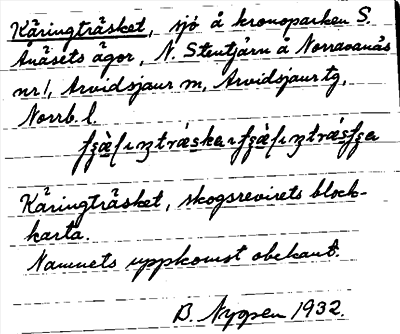 Käringträsket, sjö å kronoparken S.
Ånäsets ägor, N. Stentjärn å Norraoanäs
nr 1, Arvidsjaur m, Arvidsjaur tg,
Norrb. l.
Käringträsket, skogsrevirets block-
karta.
Namnets uppkomst obekant.
B. Nygren 1932.